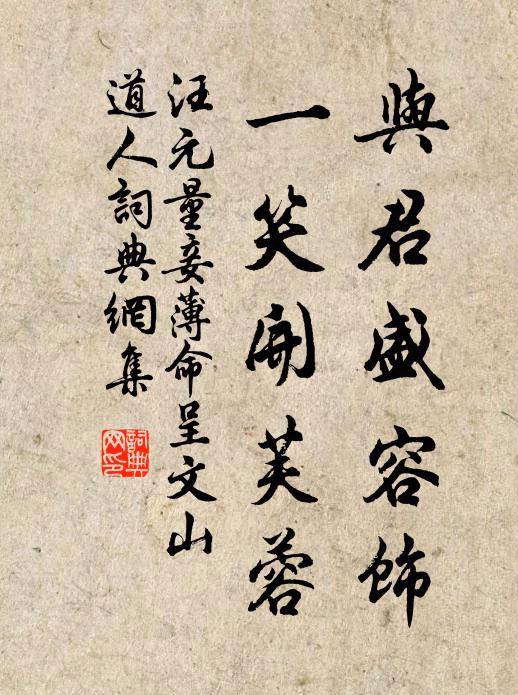 與君盛容飾
一笑開芙蓉
汪元量妾薄命呈文山
道人詞典網集
詞典網印